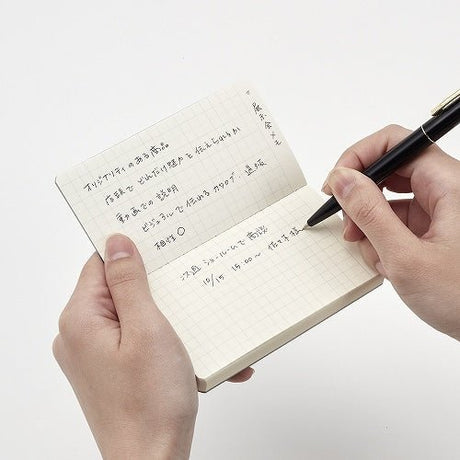 展示会メモ
オリジナリティのある商品
店頭でどれだけ魅力を伝えられるか
動画での説明
ビジュアルで伝えるカタログ、通販
相性〇
次週ショールームで商談
10/15 15:00〜 佐々木様